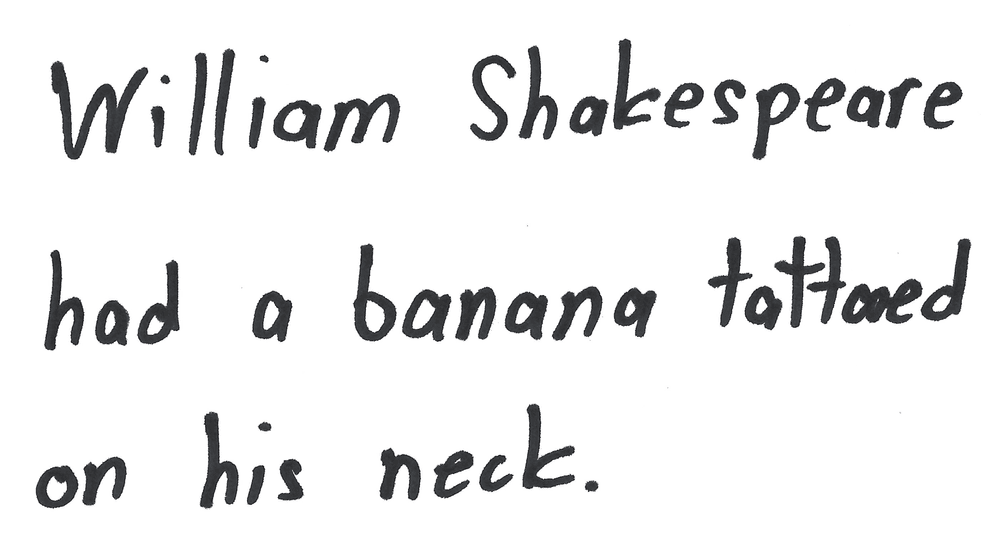 William Shakespeare
had a banana tattooed
on his neck.